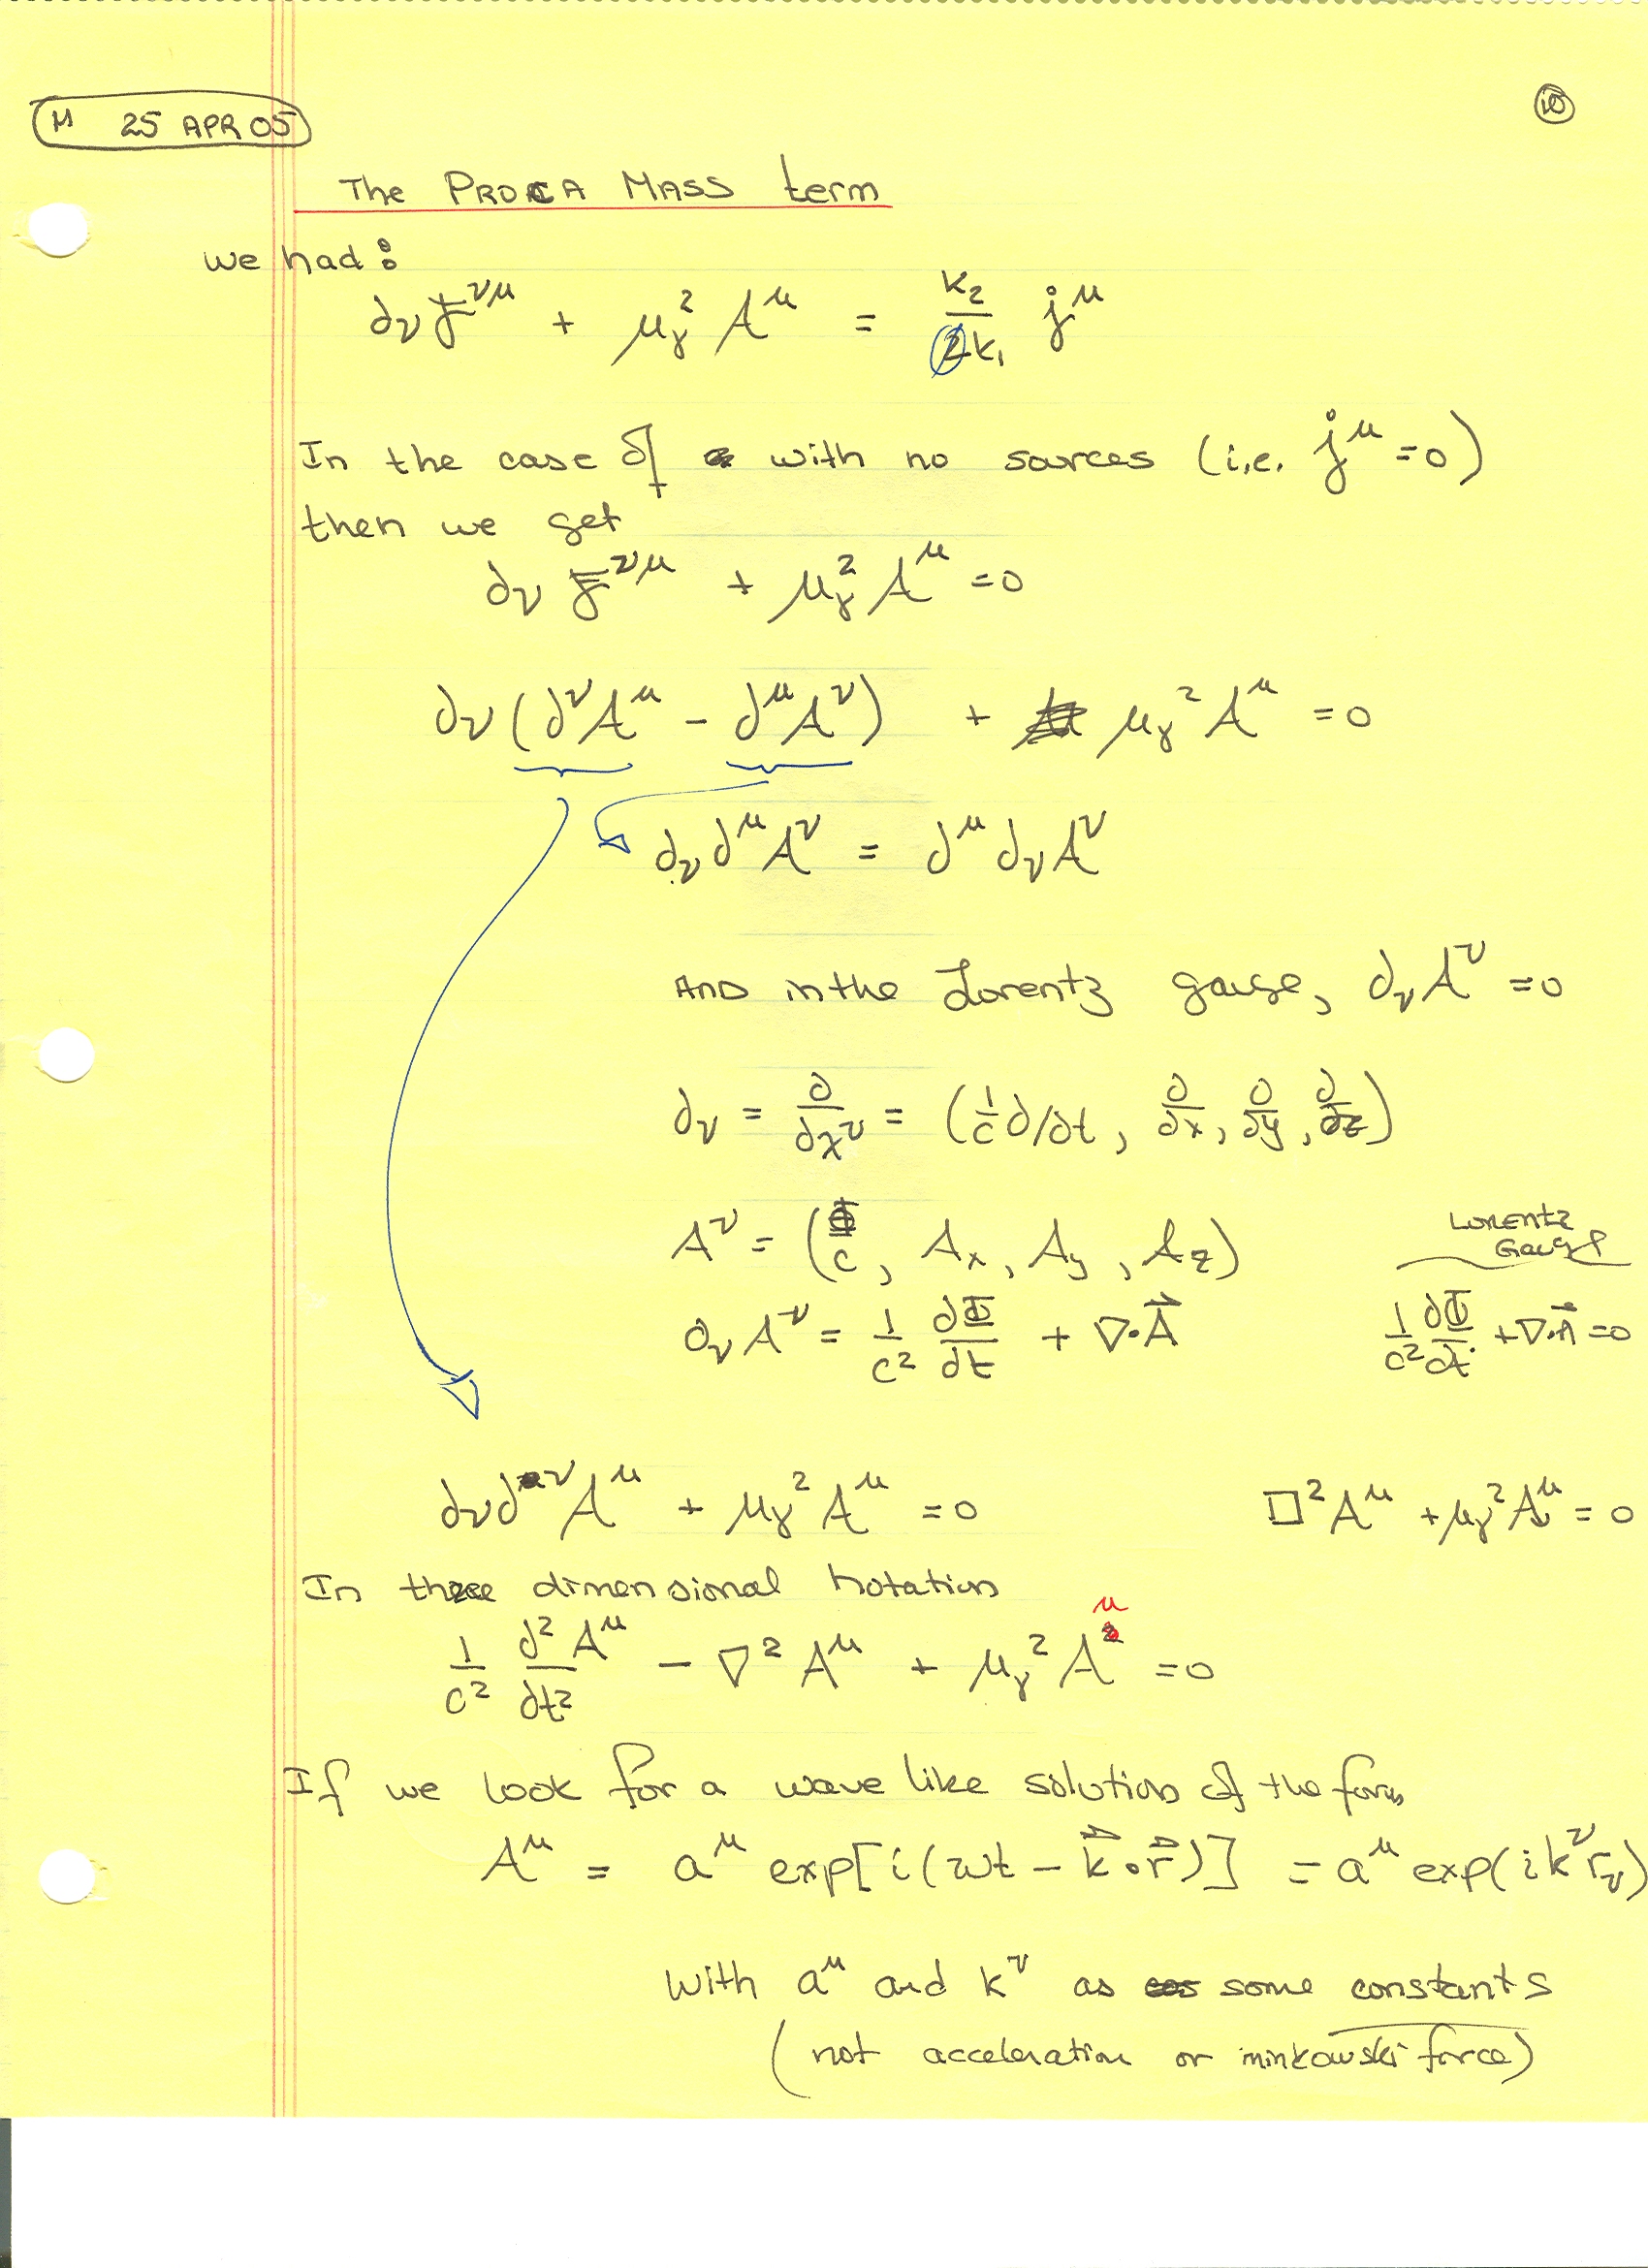 M 25 APR 05
10
The PROCA MASS term
we had:
∂ν F^νμ + μγ² A^μ = k₂/2k₁ j^μ
In the case of with no sources (i.e. j^μ =0)
then we get
∂ν F^νμ + μγ² A^μ =0
∂ν (∂^νA^μ - ∂^μA^ν) + μγ² A^μ =0
∂ν∂^μA^ν = ∂^μ∂νA^ν
AND in the Lorentz gauge, ∂νA^ν =0
∂ν = ∂/∂x^ν = (1/c ∂/∂t, ∂/∂x, ∂/∂y, ∂/∂z)
A^ν = (Φ/c, Ax, Ay, Az)
Lorentz
Gauge
∂νA^ν = 1/c² ∂Φ/∂t + ∇·A⃗
1/c² ∂Φ/∂t +∇·A⃗ =0
∂ν∂^νA^μ + μγ² A^μ =0
□²A^μ +μγ²A^μ = 0
In three dimensional notation
1/c² ∂²A^μ/∂t² - ∇²A^μ + μγ² A^μ =0
If we look for a wave like solution of the form
A^μ = a^μ exp[i(ωt - k⃗·r⃗)] = a^μ exp(ik^νrν)
with a^μ and k^ν as some constants
(not acceleration or minkowski force)